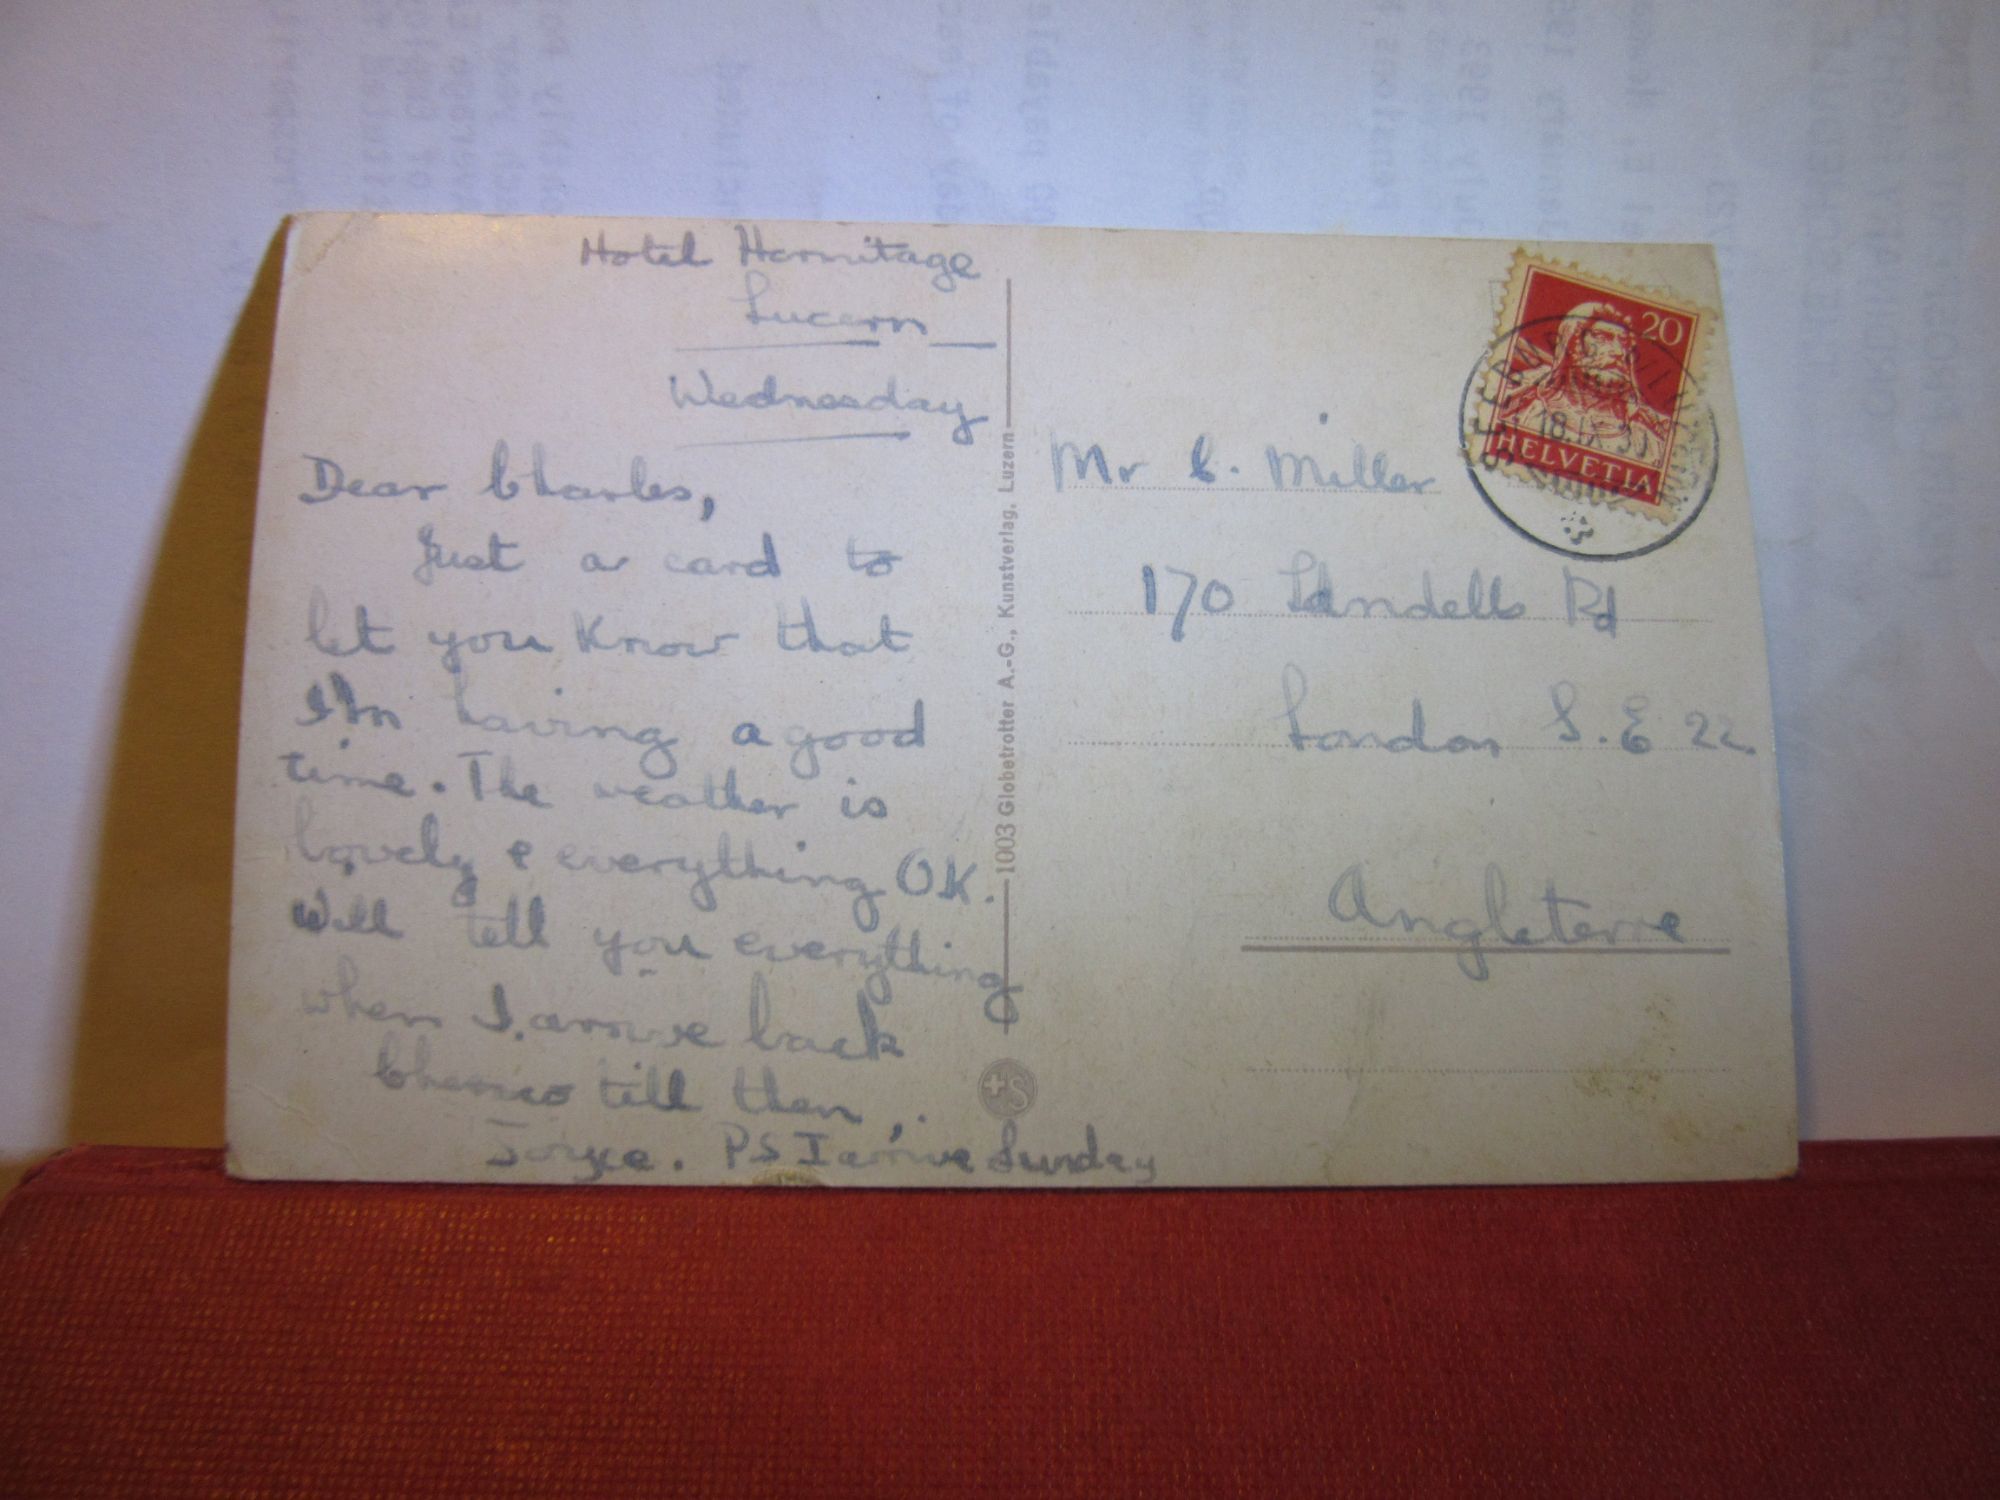 Hotel Hermitage
Lucern
Wednesday
Dear Charles,
Just a card to
let you know that
I'm having a good
time. The weather is
lovely & everything OK.
Will tell you everything
when I arrive back
Cheerio till then,
Joyce. PS I arrive Sunday
1003 Globetrotter A.-G., Kunstverlag, Luzern
+S
20
HELVETIA
18.IX.3
Mr C. Miller
170 Landells Rd
London S.E 22
Angleterre